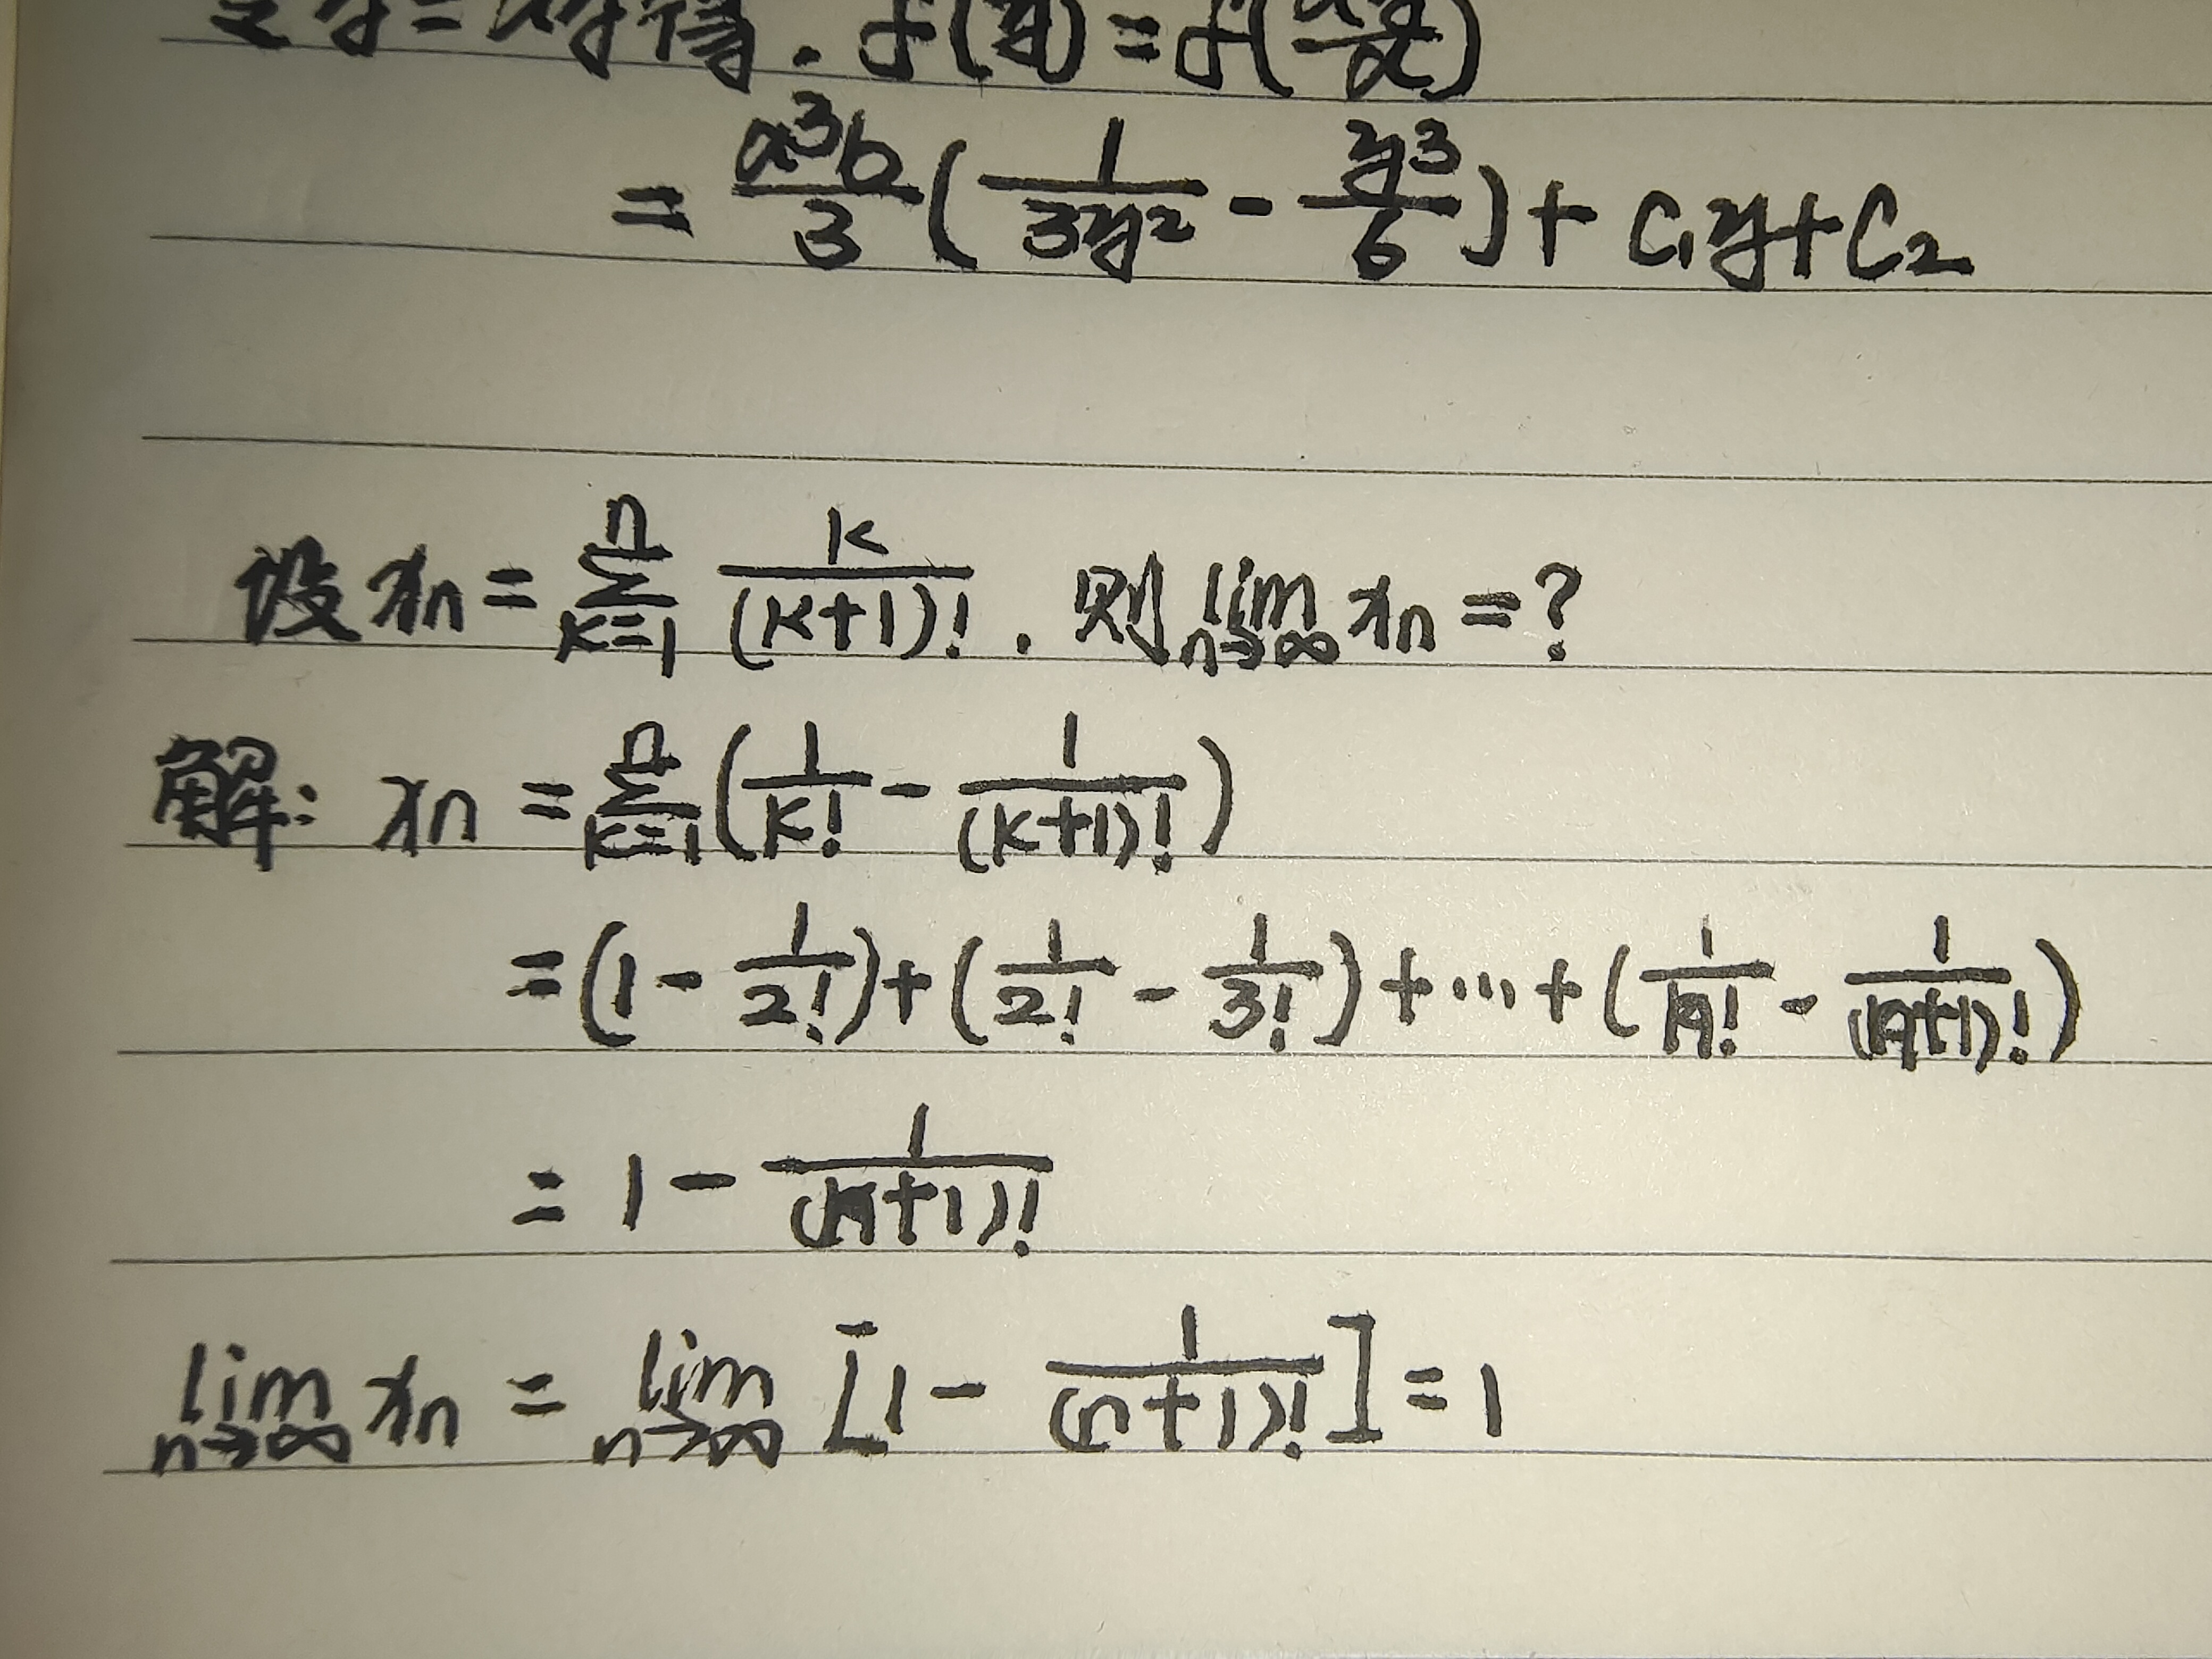 令y=xy得. f(y)=f(xy/x)
= x³b/3 (1/3y² - y³/6) + C₁y + C₂
设 xₙ = ∑ₖ₌₁ⁿ k/(k+1)! . 则 lim n→∞ xₙ = ?
解: xₙ = ∑ₖ₌₁ⁿ (1/k! - 1/(k+1)!)
= (1 - 1/2!) + (1/2! - 1/3!) + ... + (1/n! - 1/(n+1)!)
= 1 - 1/(n+1)!
lim n→∞ xₙ = lim n→∞ [1 - 1/(n+1)!] = 1